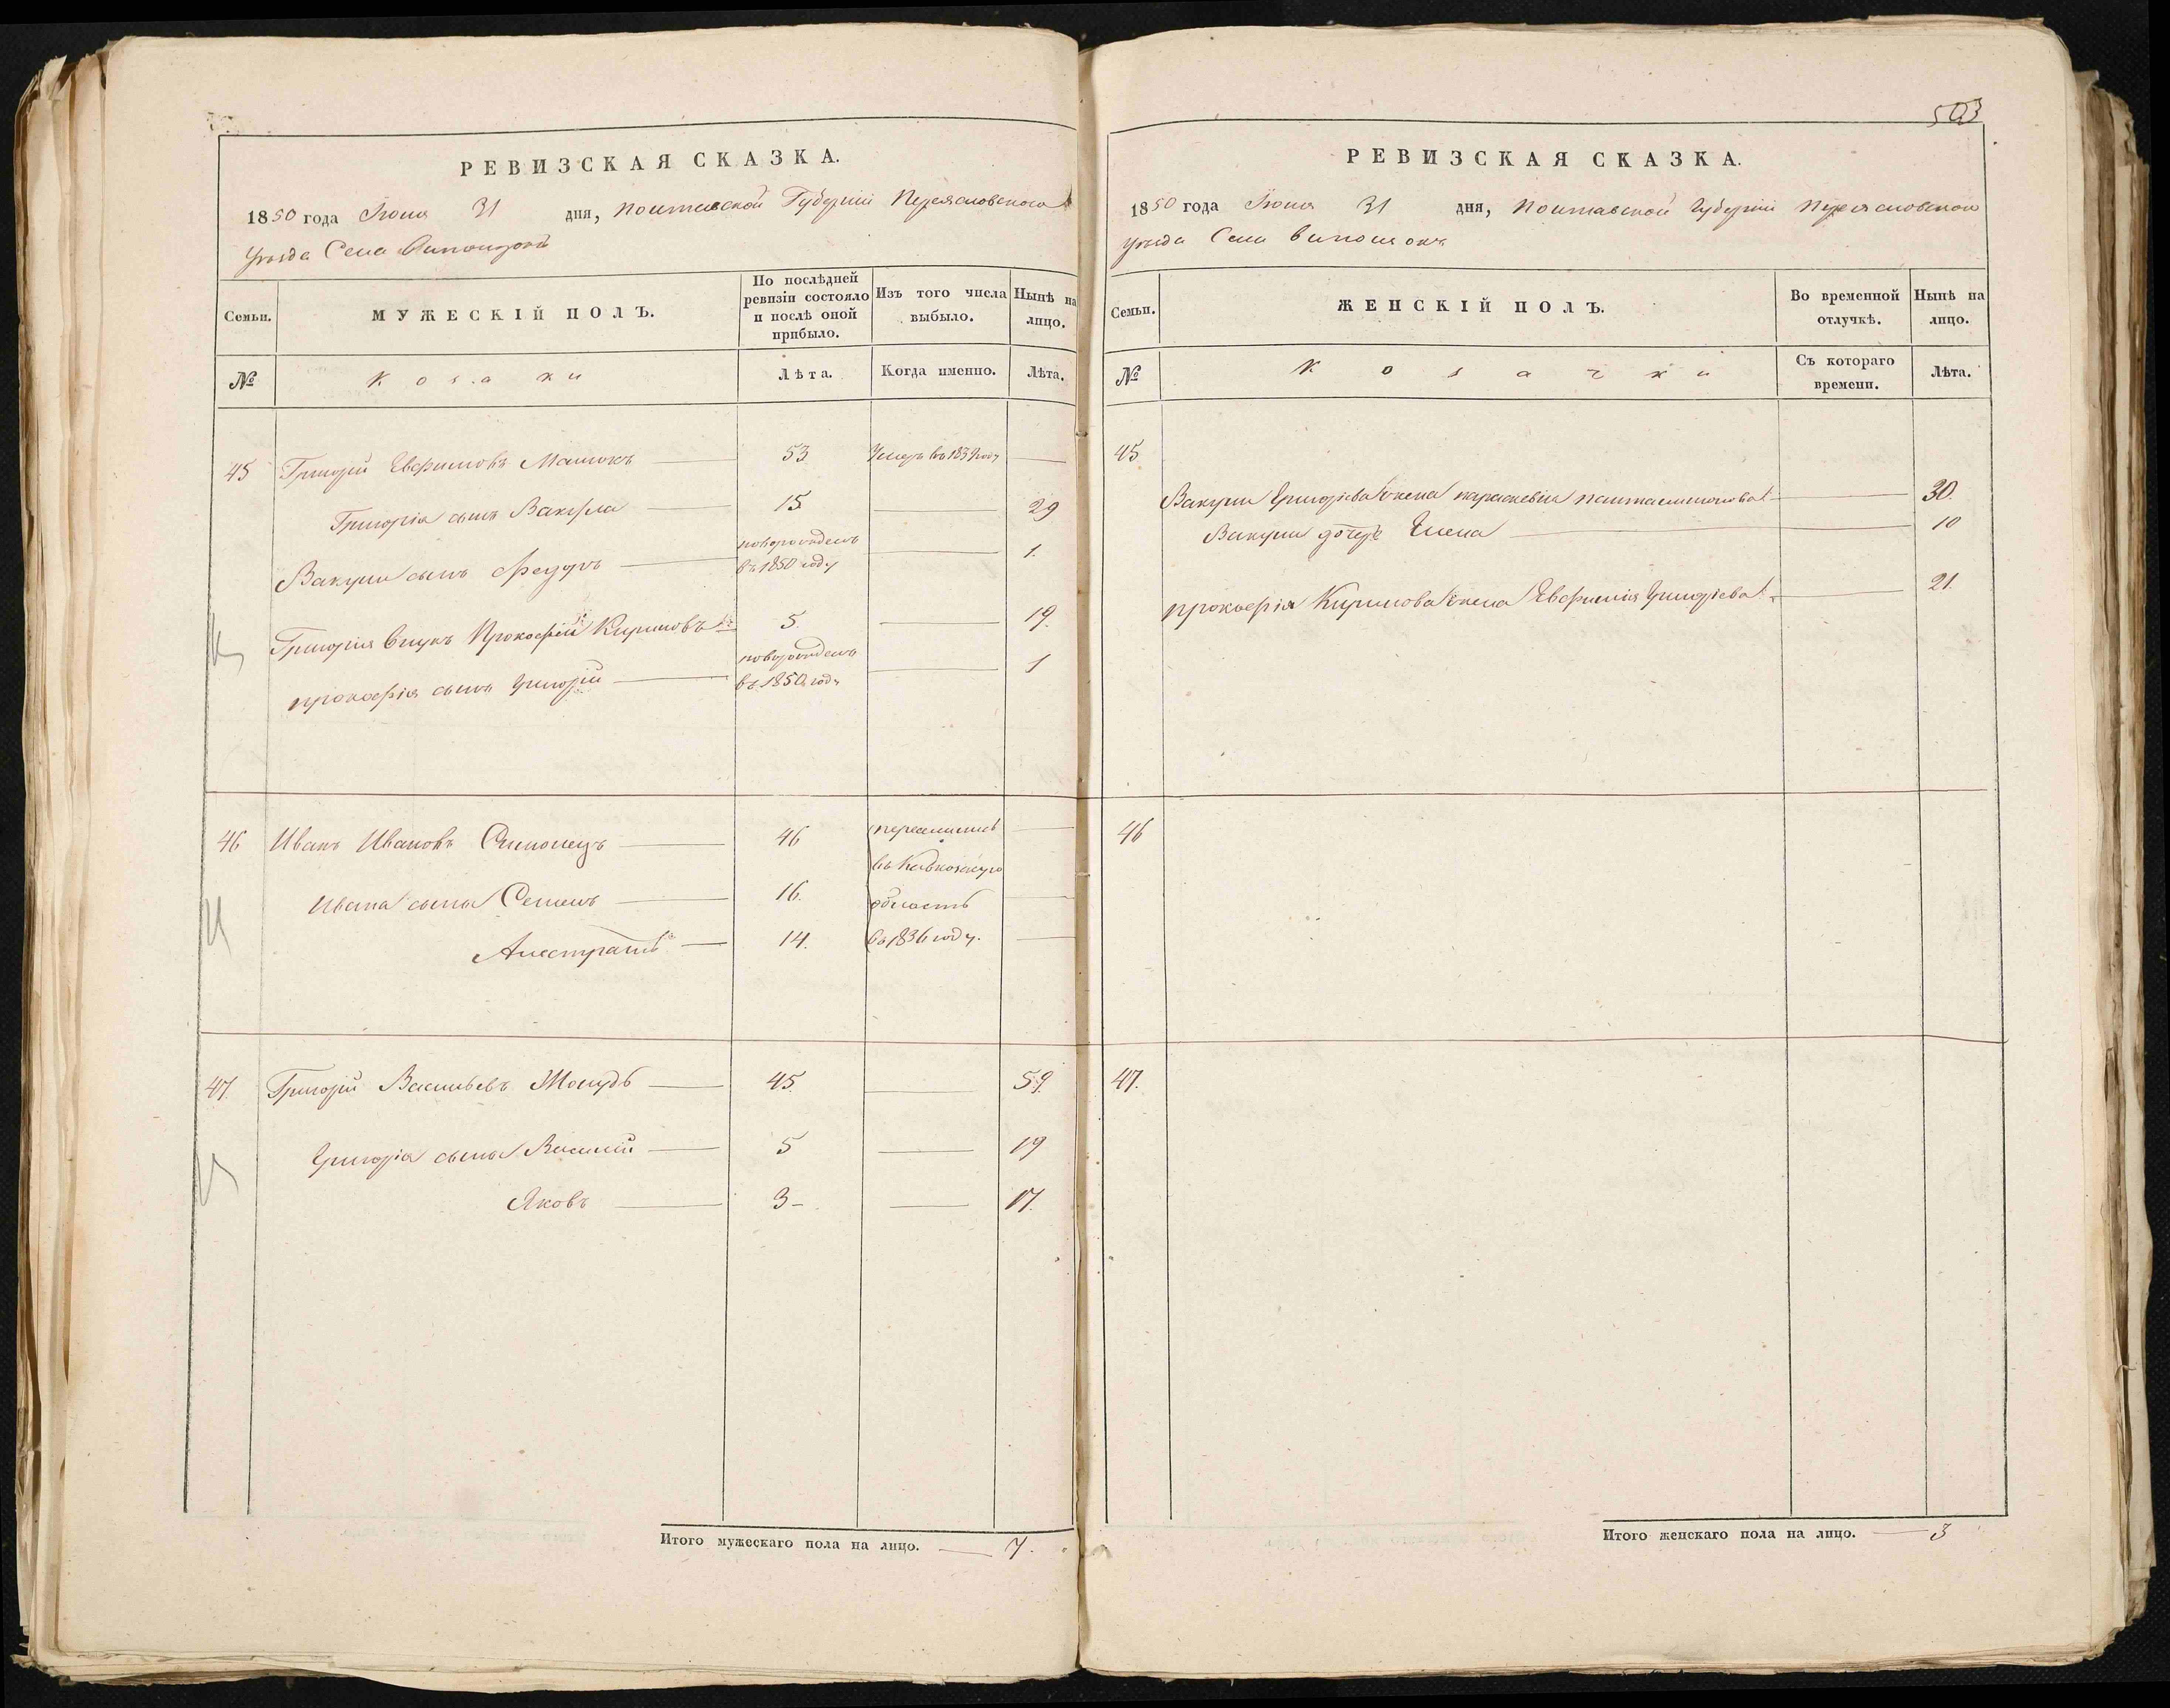 РЕВИЗСКАЯ СКАЗКА.
1850 года Іюля 31 дня, Полтавской Губерніи Переясловского
уѣзда Села
Семьи. МУЖЕСКІЙ ПОЛЪ. По послѣдней ревизіи состояло и послѣ оной прибыло. Изъ того числа выбыло. Нынѣ на лицо.
№ Козаки Лѣта. Когда именно. Лѣта.
45 Григорій Евфимовъ 53. Умеръ въ 1839 году
Григорія сынъ Вакула 15. 29
Вакулы сынъ Федоръ новорожденъ въ 1850 году 1.
Григорія внукъ Прокофій Кириловъ 5. 19.
Прокофія сынъ Григорій новорожденъ въ 1850 году 1
46 Иванъ Ивановъ 46 переселились
въ Кавказскую
Ивана сыны Семенъ 16. область
14. въ 1836 году.
47. Григорій Васильевъ 45. 59.
Григорія сыны Василій 5 19
Яковъ 3 17.
Итого мужескаго пола на лицо. 7.
503
РЕВИЗСКАЯ СКАЗКА.
1850 года Іюля 31 дня, Полтавской Губерніи Переясловского
уѣзда Села
Семьи. ЖЕНСКІЙ ПОЛЪ. Во временной отлучкѣ. Нынѣ на лицо.
№ Козачки Съ котораго времени. Лѣта.
45
Вакулы Григоріева жена Параскевія Пантелимонова 30.
Вакулы дочерь Елена 10
Прокофія Кирилова жена Евфимія Григоріева 21.
46
47.
Итого женскаго пола на лицо. 3